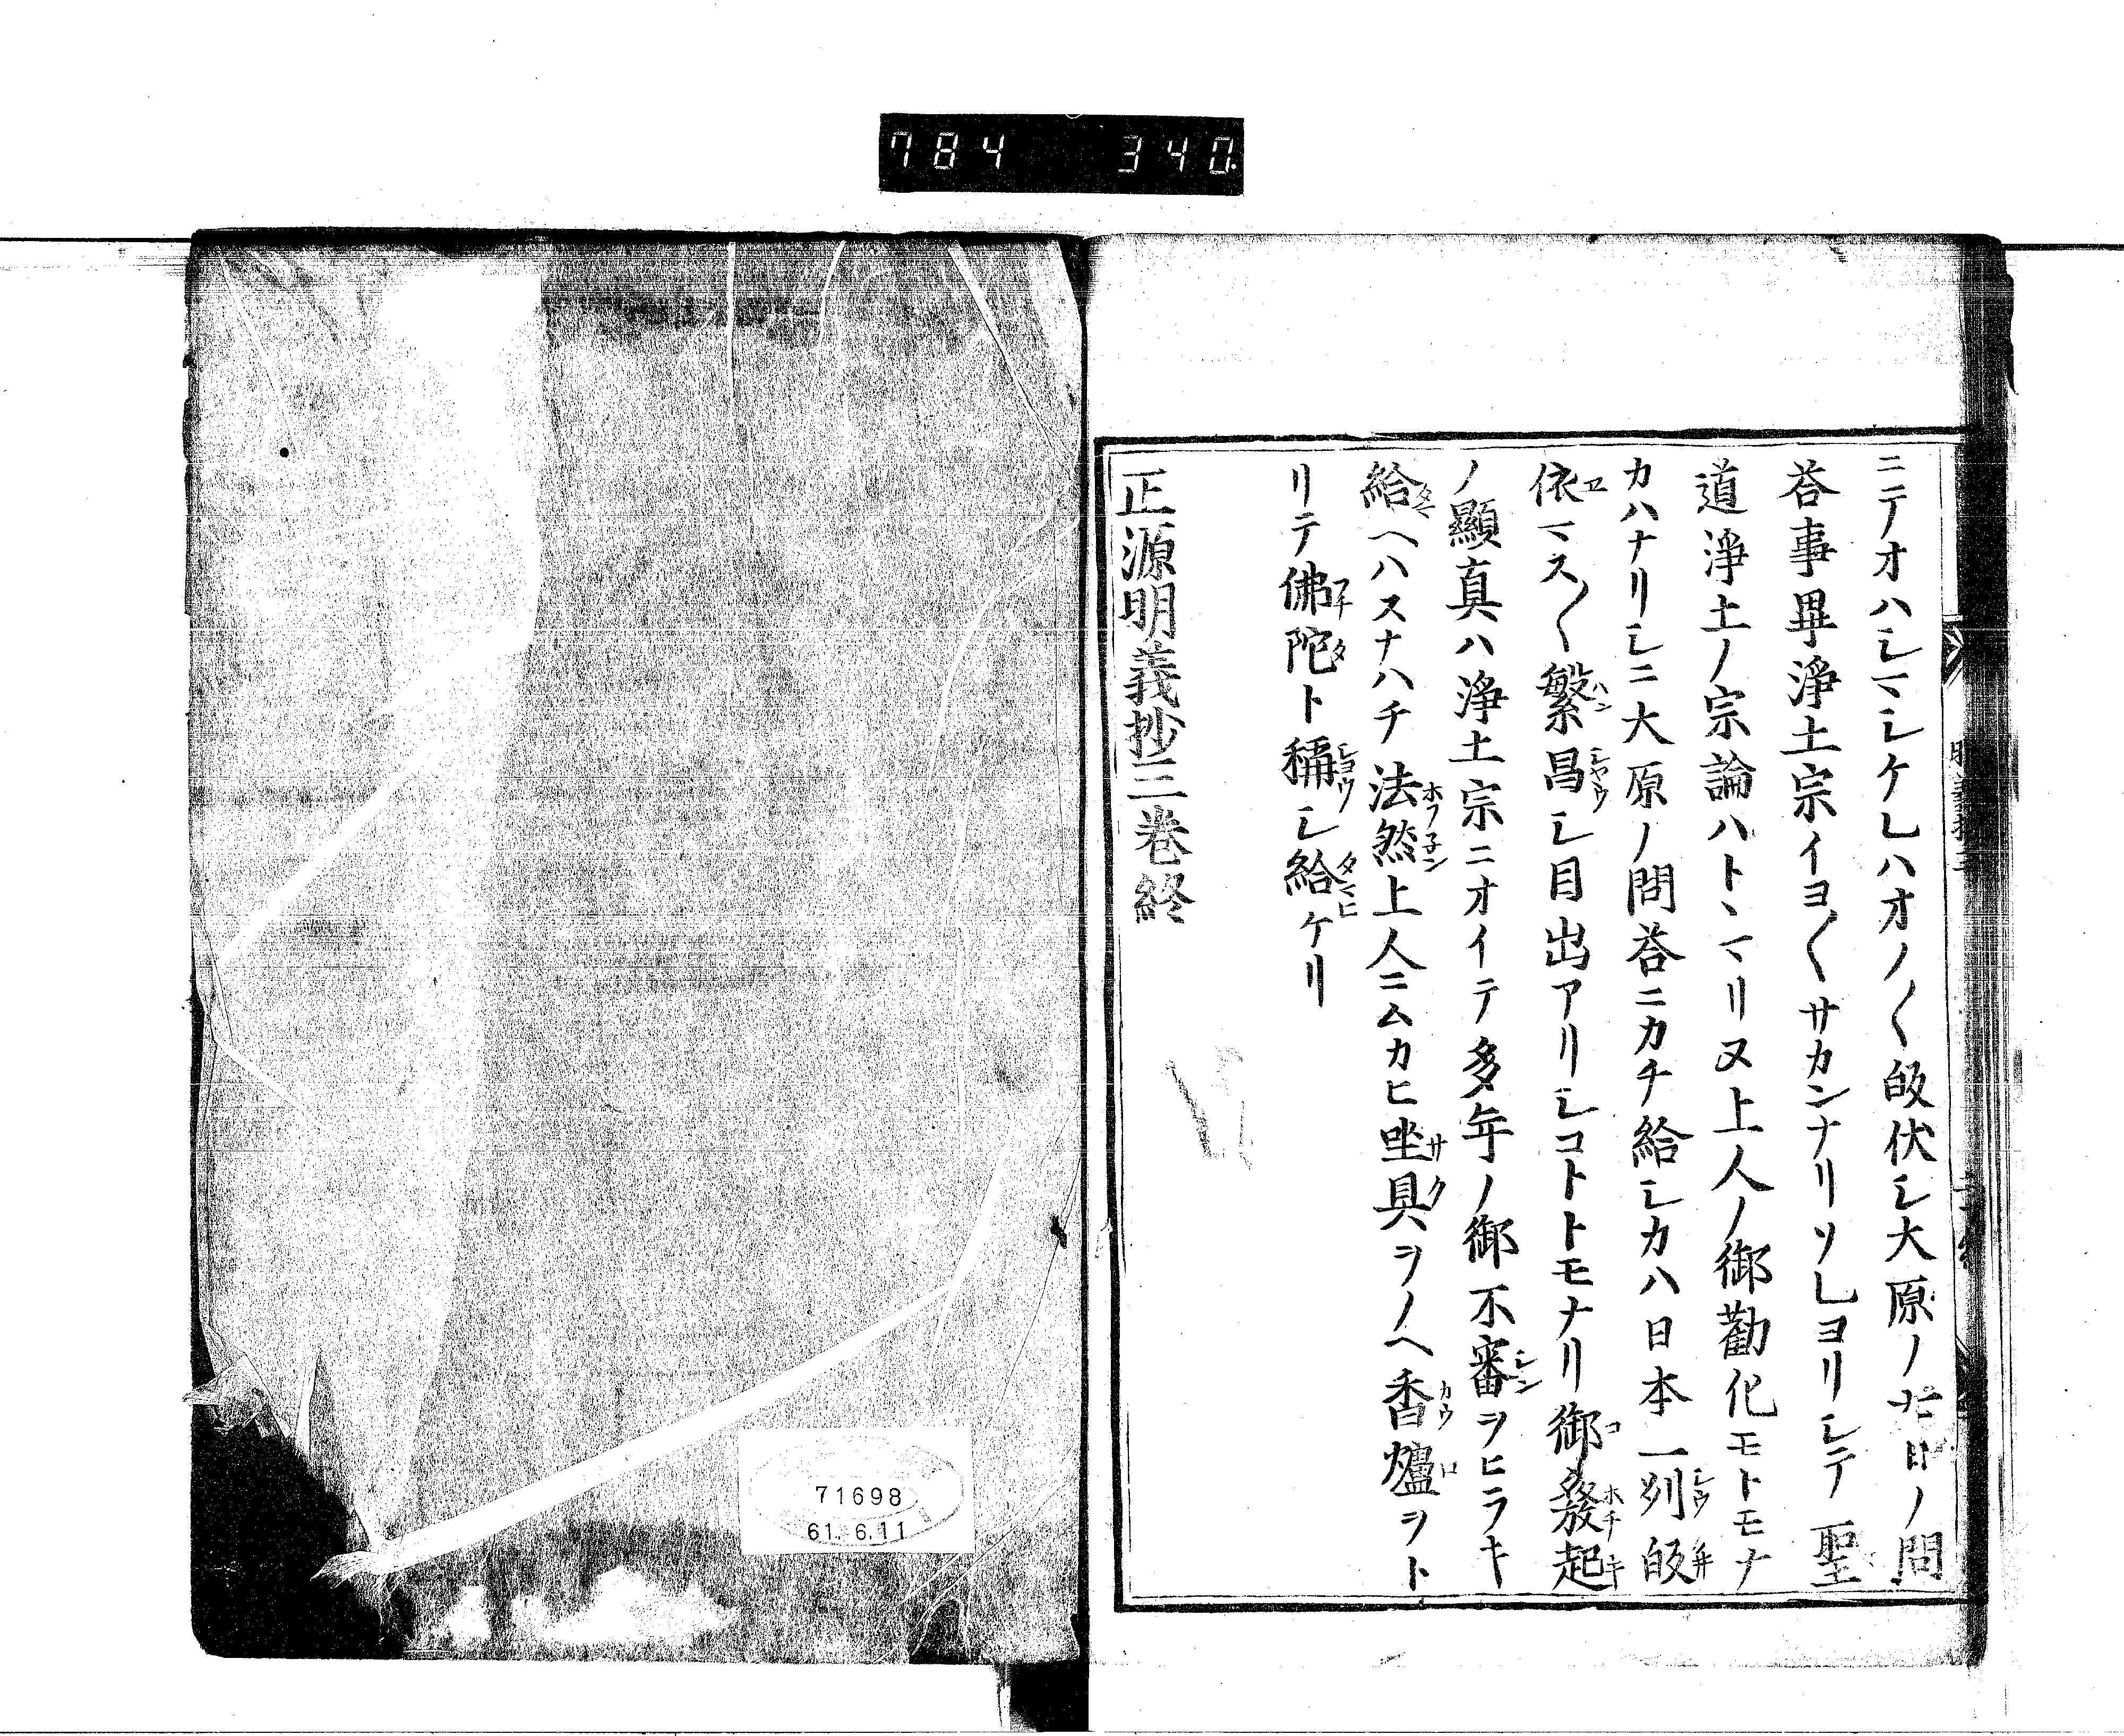 784 340
ニテオハシマシケレハオノ〱皈伏シ大原ノ廿日ノ問
荅事畢浄土宗イヨ〱サカンナリソレヨリシテ聖
道浄土ノ宗論ハトヽマリヌ上人ノ御勸化モトモナ
カハナリシニ大原ノ問荅ニカチ給シカハ日本一刕皈
依マス〱繁昌シ目出アリシコトトモナリ御發起
ノ顯真ハ浄土宗ニオイテ多年ノ御不審ヲヒラキ
給ヘハスナハチ法然上人ニムカヒ坐具ヲノヘ香爐ヲト
リテ佛陀ト稱シ給ケリ
正源明義抄三卷終
71698
61. 6.11